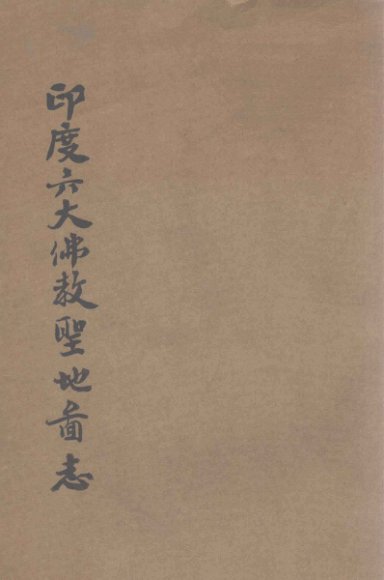 印度六大佛教聖地啚志